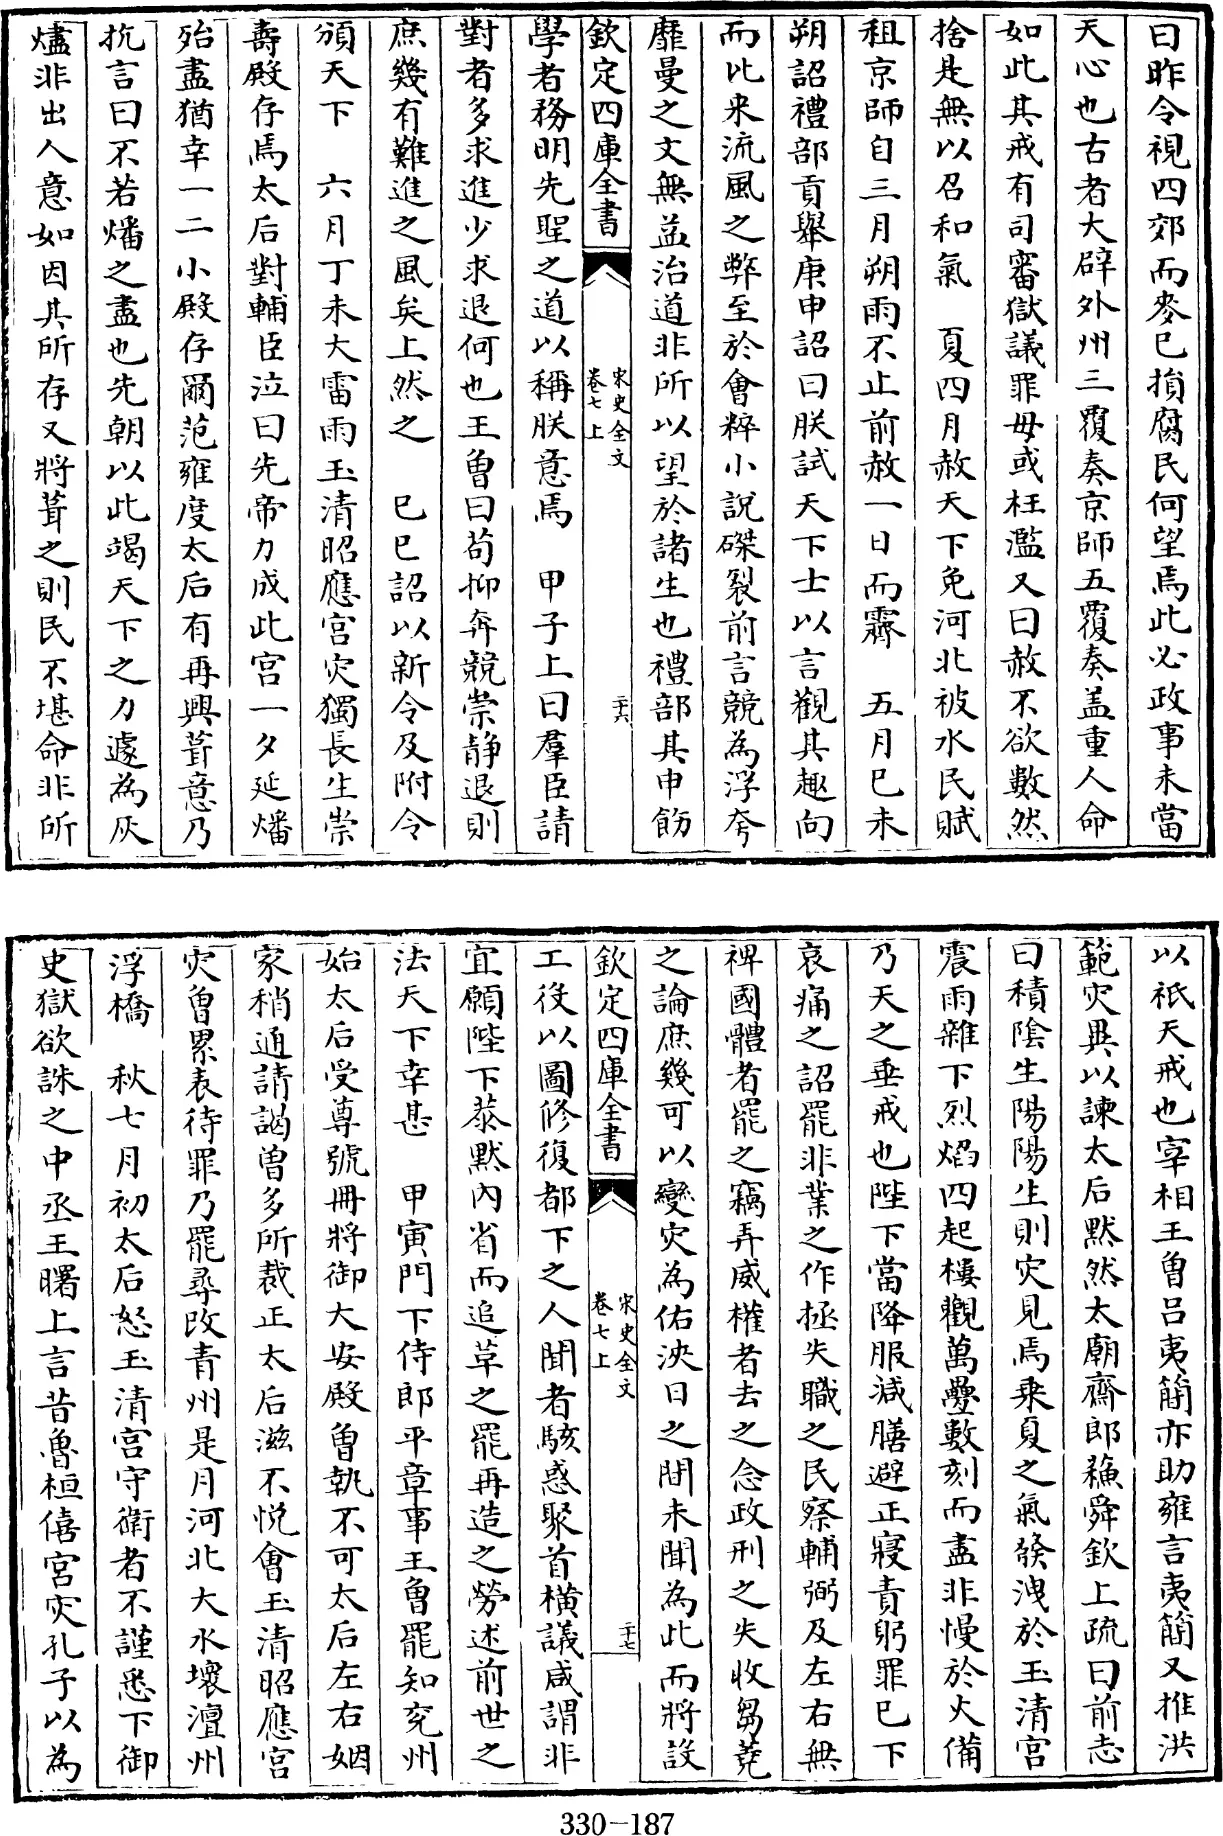 曰昨令視四郊而麥已損腐民何望焉此必政事未當
天心也古者大辟外州三覆奏京師五覆奏盖重人命
如此其戒有司審獄議罪毋或枉濫又曰赦不欲數然
捨是無以召和氣　夏四月赦天下免河北被水民賦
租京師自三月朔雨不止前赦一日而霽　五月己未
朔詔禮部貢舉庚申詔曰朕試天下士以言觀其趣向
而比来流風之弊至於會粹小說磔裂前言競為浮夸
靡曼之文無益治道非所以望於諸生也禮部其申飭
欽定四庫全書
宋史全文
卷七上
二十六
學者務明先聖之道以稱朕意焉　甲子上曰羣臣請
對者多求進少求退何也王曾曰苟抑奔競崇静退則
庶幾有難進之風矣上然之　己巳詔以新令及附令
頒天下　六月丁未大雷雨玉清昭應宫灾獨長生崇
壽殿存焉太后對輔臣泣曰先帝力成此宫一夕延燔
殆盡猶幸一二小殿存爾范雍度太后有再興葺意乃
抗言曰不若燔之盡也先朝以此竭天下之力遽為灰
燼非出人意如因其所存又將葺之則民不堪命非所
以祇天戒也宰相王曾吕夷簡亦助雍言夷簡又推洪
範灾異以諫太后黙然太廟齋郎蘓舜欽上疏曰前志
曰積陰生陽陽生則灾見焉乘夏之氣發洩於玉清宫
震雨雜下烈焰四起樓觀萬疊數刻而盡非慢於火備
乃天之垂戒也陛下當降服減膳避正寢責躬罪己下
哀痛之詔罷非業之作拯失職之民察輔弼及左右無
裨國體者罷之竊弄威權者去之念政刑之失收芻蕘
之論庶幾可以變灾為佑浹日之間未聞為此而將設
欽定四庫全書
宋史全文
卷七上
二十七
工役以圖修復都下之人聞者駭惑聚首横議咸謂非
宜願陛下恭黙內省而追草之罷再造之勞述前世之
法天下幸甚　甲寅門下侍郎平章事王曾罷知兖州
始太后受尊號冊將御大安殿曾執不可太后左右姻
家稍通請謁曾多所裁正太后滋不悦會玉清昭應宫
灾曾累表待罪乃罷尋改青州是月河北大水壞澶州
浮橋　秋七月初太后怒玉清宫守衛者不謹悉下御
史獄欲誅之中丞王曙上言昔魯桓僖宫灾孔子以為
330-187